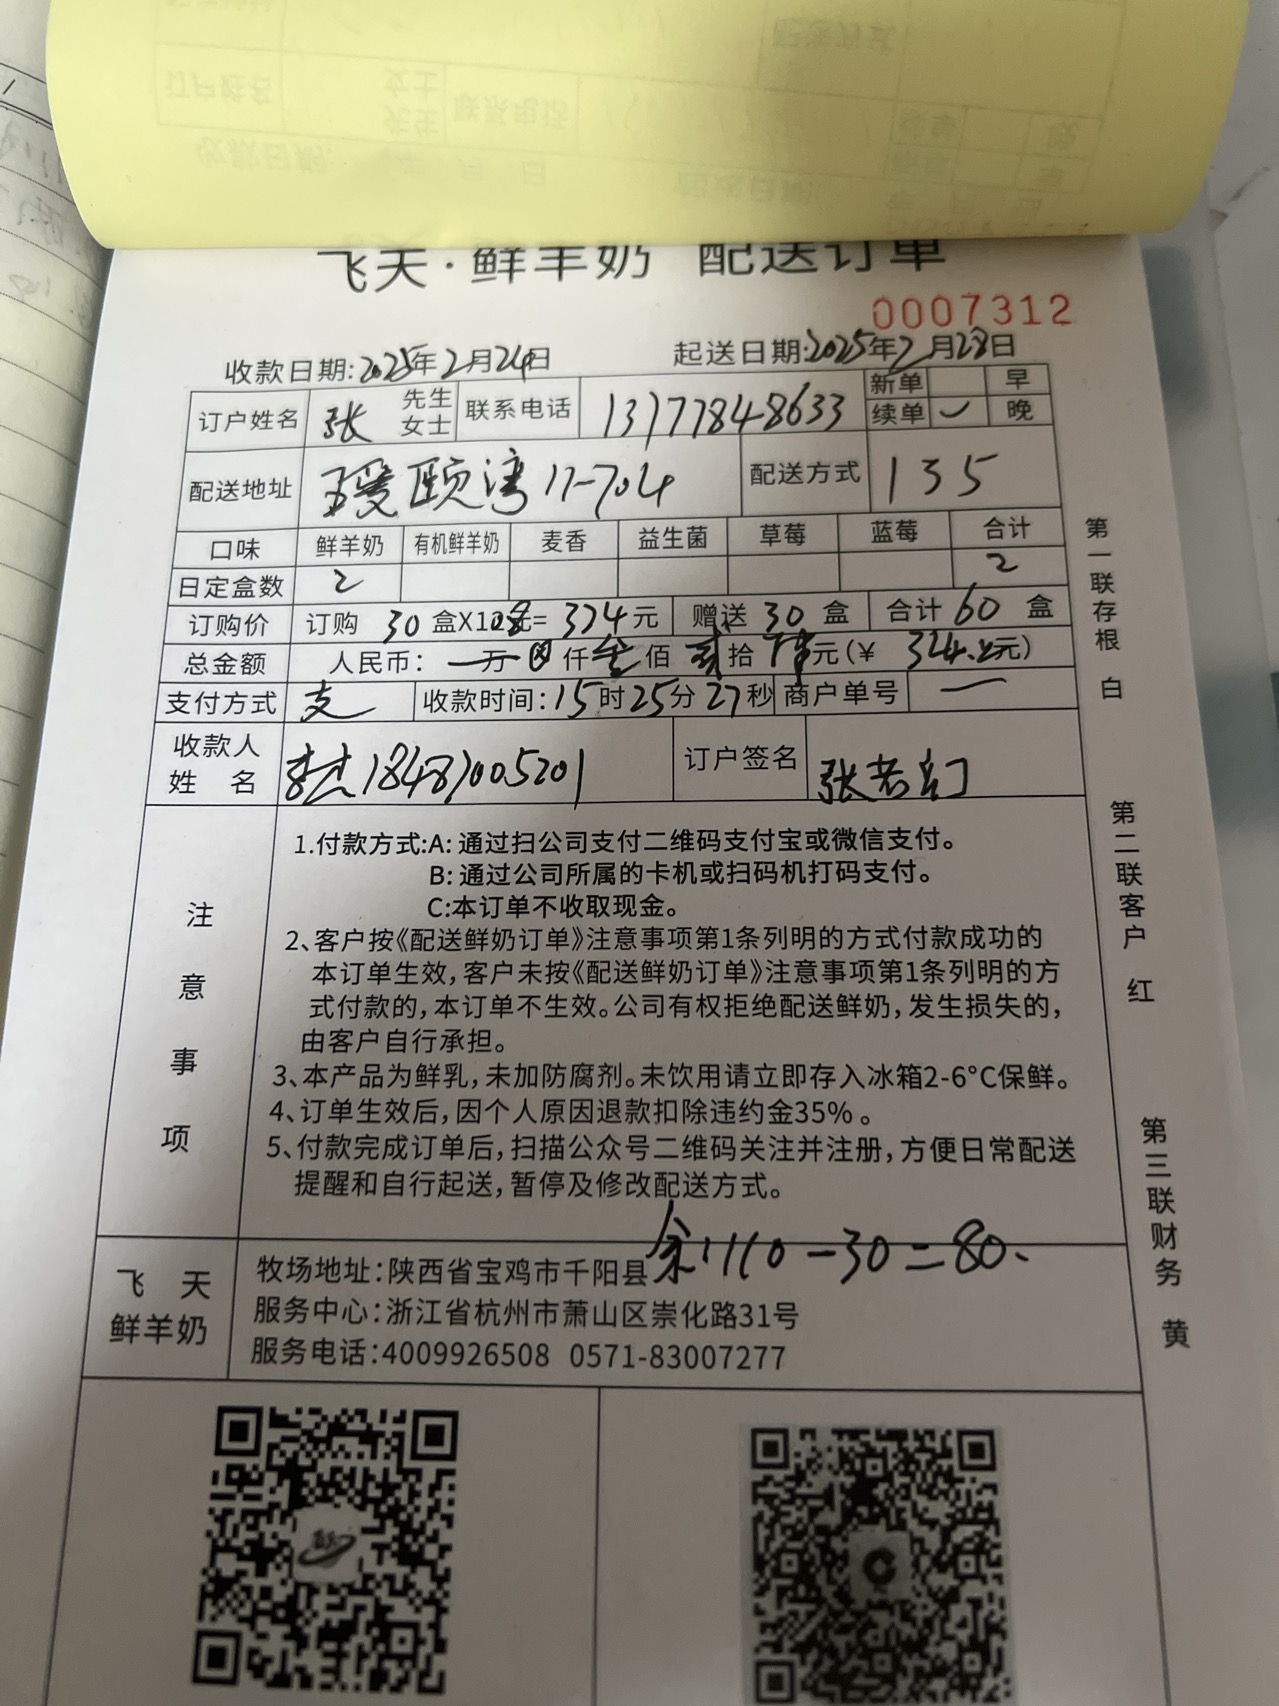 飞天·鲜羊奶 配送订单
0007312
收款日期:2025年2月24日 起送日期:2025年2月28日
订户姓名 张 先生 女士 联系电话 13777848633 新单 早 续单 ✓ 晚
配送地址 瑷颐湾11-704 配送方式 135
口味 鲜羊奶 有机鲜羊奶 麦香 益生菌 草莓 蓝莓 合计
日定盒数 2 2
订购价 订购 30 盒X10.8元= 324元 赠送 30 盒 合计 60 盒
总金额 人民币: 万 仟 叁 佰 贰 拾 肆 元(¥ 324.元)
支付方式 支 收款时间:15时25分27秒 商户单号 一
收款人姓名 李杰18487005201 订户签名 张
注意事项
1.付款方式:A:通过扫公司支付二维码支付宝或微信支付。
B:通过公司所属的卡机或扫码机打码支付。
C:本订单不收取现金。
2、客户按《配送鲜奶订单》注意事项第1条列明的方式付款成功的
本订单生效,客户未按《配送鲜奶订单》注意事项第1条列明的方
式付款的,本订单不生效。公司有权拒绝配送鲜奶,发生损失的,
由客户自行承担。
3、本产品为鲜乳,未加防腐剂。未饮用请立即存入冰箱2-6°C保鲜。
4、订单生效后,因个人原因退款扣除违约金35%。
5、付款完成订单后,扫描公众号二维码关注并注册,方便日常配送
提醒和自行起送,暂停及修改配送方式。
余:110-30=80.
飞天
鲜羊奶
牧场地址:陕西省宝鸡市千阳县
服务中心:浙江省杭州市萧山区崇化路31号
服务电话:4009926508 0571-83007277
第一联存根 白
第二联客户 红
第三联财务 黄